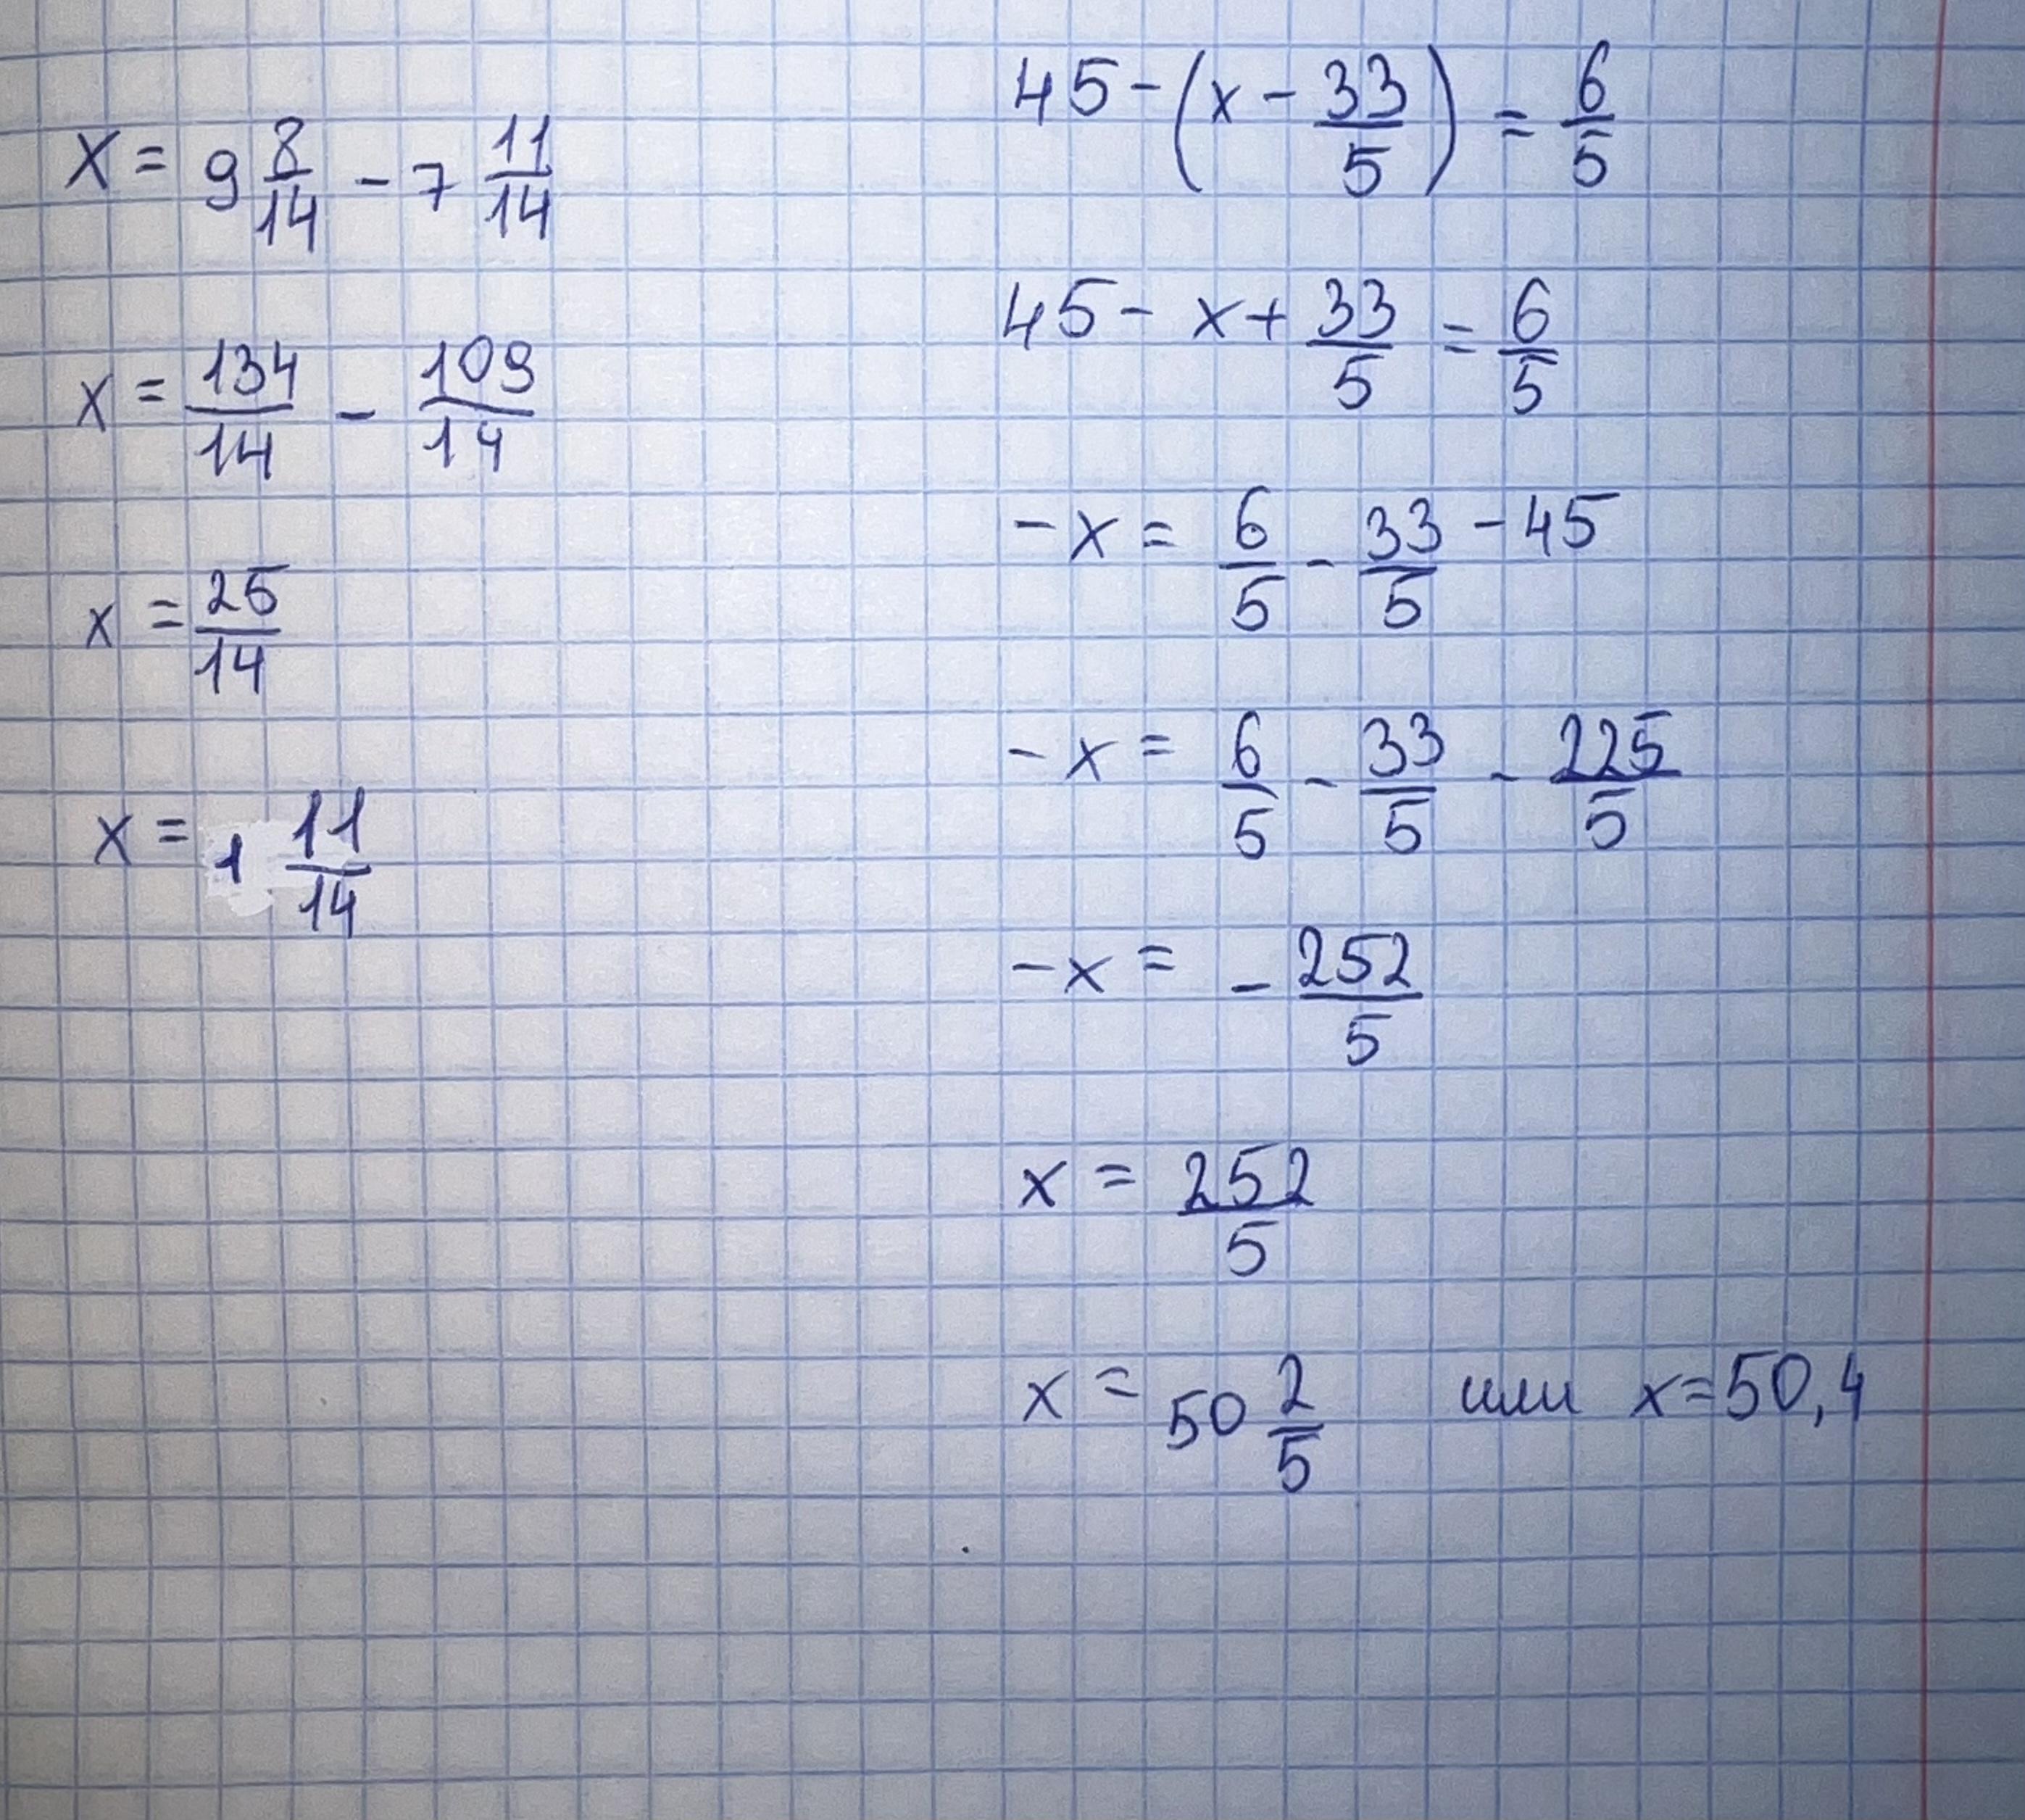 x = 9 8/14 - 7 11/14
x = 134/14 - 109/14
x = 25/14
x = 1 11/14
45 - (x - 33/5) = 6/5
45 - x + 33/5 = 6/5
-x = 6/5 - 33/5 - 45
-x = 6/5 - 33/5 - 225/5
-x = - 252/5
x = 252/5
x = 50 2/5 или x = 50,4